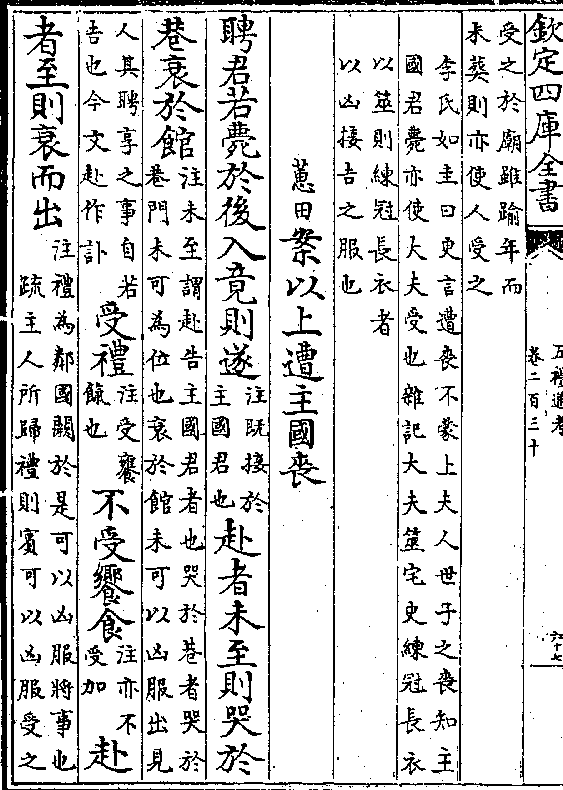 欽定四庫全書
五禮通考
卷二百三十
六十七
受之於廟雖踰年而
未葬則亦使人受之
李氏如圭曰更言遭喪不蒙上夫人世子之喪知主
國君薨亦使大夫受也雜記大夫筮宅史練冠長衣
以筮則練冠長衣者
以凶接吉之服也
蕙田案以上遭主國喪
聘君若薨於後入竟則遂
注既接於
主國君也
赴者未至則哭於
巷衰於館
注未至謂赴告主國君者也哭於巷者哭於
巷門未可為位也衰於館未可以凶服出見
人其聘享之事自若
吉也今文赴作訃
受禮
注受饔
餼也
不受饗食
注亦不
受加
赴
者至則衰而出
注禮為鄰國闕於是可以凶服將事也
疏主人所歸禮則賓可以凶服受之